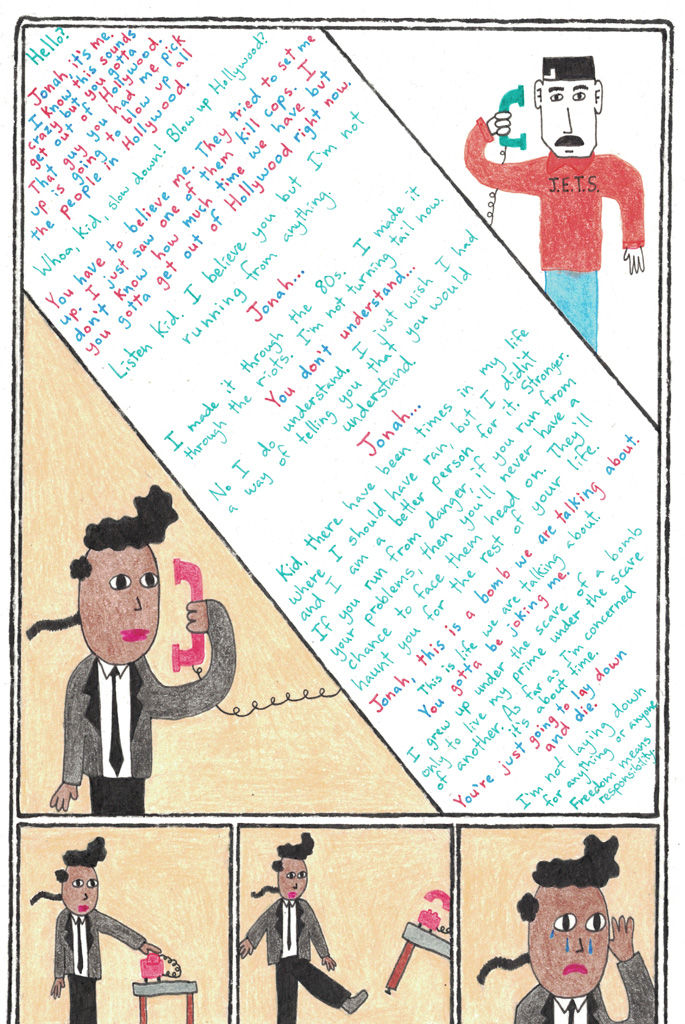 Hello?
Jonah, it's me.
I know this sounds
crazy but you gotta
get out of Hollywood.
That guy you had me pick
up is going to blow up all
the people in Hollywood
Whoa, kid, slow down! Blow up Hollywood?
You have to believe me. They tried to set me
up. I just saw one of them kill cops. I
don't know how much time we have but
you gotta get out of Hollywood right now.
Listen Kid. I believe you but I'm not
running from anything
Jonah...
I made it through the 80s. I made it
through the riots. I'm not turning tail now.
You don't understand...
No I do understand, I just wish I had
a way of telling you that you would
understand.
Jonah...
Kid, there have been times in my life
where I should have ran, but I didn't
and I am a better person for it. Stronger.
If you run from danger, if you run from
your problems, then you'll never have a
chance to face them head on. They'll
haunt you for the rest of your life.
Jonah, this is a bomb we are talking about.
This is life we are talking about
You gotta be joking me.
I grew up under the scare of a bomb
only to live my prime under the scare
of another. As far as I'm concerned
it's about time.
You're just going to lay down
and die.
I'm not laying down
for anything or anyone
Freedom means
responsibility.
J.E.T.S.